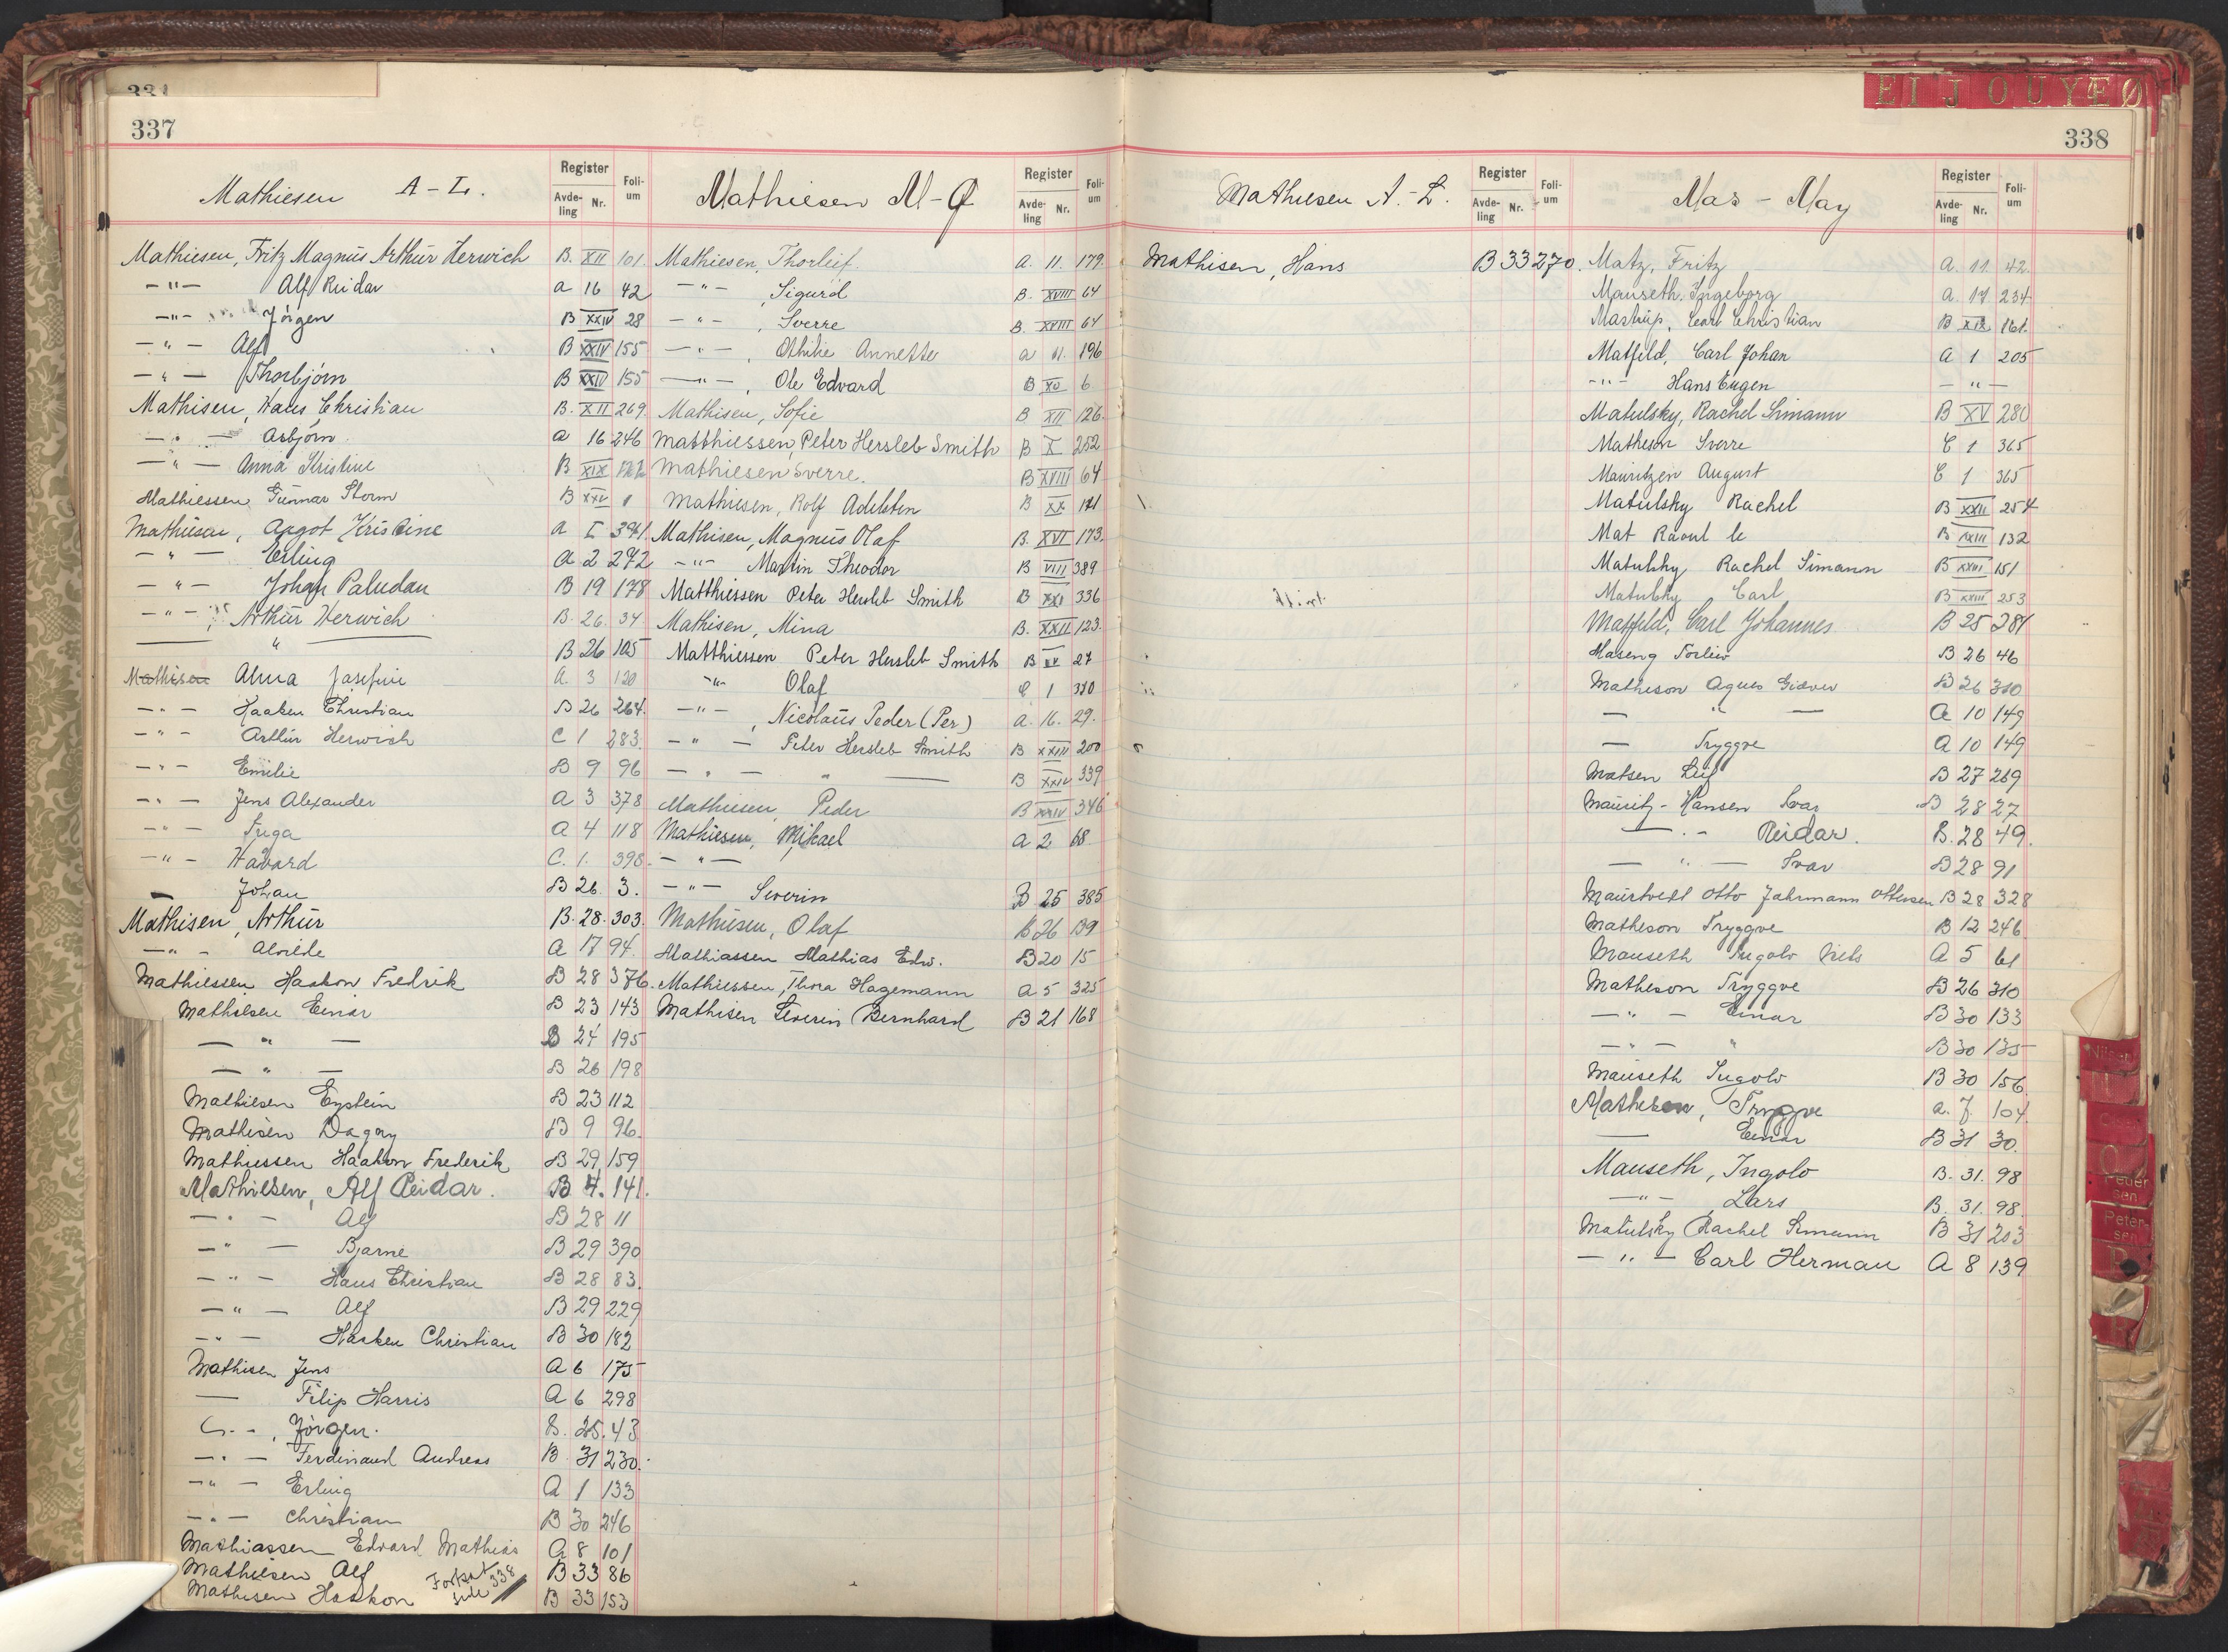 334
337
Mathiesen A-L.
Register
Avde-ling Nr.
Foli-um
Mathiesen, Fritz Magnus Arthur Herwich B. XII 101.
-"- Alf Reidar A 16 42
-"- Jörgen B XXIV 28
-"- Alf B XXIV 155
-"- Thorbjörn B XXIV 155
Mathisen, Hans Christian B. XII 269.
-"- Asbjörn A 16 246
-"- Anna Kristine B XIX 122
Mathiessen Gunnar Storm B XXV 1
Mathiesen, Argot Kristine A I 391.
-"- Erling A 2 272
-"- Johan Paludan B 19 178
-"- Arthur Herwich B. 26. 34
" B 26 105
Mathisen Alma Josefine A. 3 120
-"- Haaken Christian B 26 264.
-"- Arthur Herwich C 1 283.
-"- Emilie B 9 96
-"- Jens Alexander A 3 378
-"- Inga A 4 118
-"- Håvard C. 1. 398.
- Johan B 26. 3.
Mathisen, Arthur B. 28. 303.
-"- Alvilde A 17 94.
Mathiessen Haakon Fredrik B 28 376.
Mathiesen Einar B 23 143
-"- B 24 195
-"- B 26 198
Mathiesen Eystein B 23 112
Mathisen Dagny B 9 96.
Mathiessen Haakon Frederik B 29 159
Mathiesen, Alf Reidar. B 4. 141.
-"- Alf B 28 11
-"- Bjarne B 29 390
-"- Hans Christian B 28 83.
-"- Alf B 29 229
-"- Haaken Christian B 30 182
Mathisen Jens A 6 175
- Filip Harris A 6 298
-"-, Jörgen. B. 25. 43
-"- Ferdinand Andreas B 31 230.
-"- Erling A 1 133
-"- Christian B 30 246
Mathiassen Edvard Mathias A 8 101
Mathiesen Alf B 33 86
Mathisen Haakon B 33 153
Fortsat side 338
Mathiesen M-Ø
Register
Avde-ling Nr.
Foli-um
Mathiesen, Thorleif A. 11. 179.
-"-, Sigurd B. XVIII 64
-"-, Sverre B. XVIII 64
-"-, Othilie Annette A 11. 196
-"-, Ole Edvard B XV 6
Mathisen, Sofie B XII 126.
Matthiessen, Peter Hersleb Smith B X 252
Mathiesen Sverre. B XVIII 64
Mathiesen, Rolf Adelsten B XX 171
Mathisen, Magnus Olaf B. XVI 173.
-"- Martin Theodor B VIII 389
Matthiessen Peter Hersleb Smith B XXI 336
Mathisen, Mina B. XXII 123.
Matthiessen Peter Hersleb Smith B XV 27
-"- Olaf C 1 310
-"-, Nicolaus Peder (Per) A. 16. 29.
-"- Peter Hersleb Smith B XXIII 200
-"- " B XXIV 339
Mathiesen, Peder B XXIV 346
Mathiesen, Mikael A 2 68
-"-
-"- Severin B 25 385
Mathiesen, Olaf B 26 139
Mathiassen Mathias Edv. B 20 15
Mathiessen, Thora Hagemann A 5 325
Mathisen Severin Bernhard B 21 168
E I J O U Y Æ Ø
338
Mathiesen A.-L.
Register
Avde-ling Nr.
Foli-um
Mathisen, Hans B 33 270.
Mas - May
Register
Avde-ling Nr.
Foli-um
Matz, Fritz A. 11. 42.
Mauseth, Ingeborg A. 17. 234
Mastrup, Carl Christian B XIX 161.
Matfeld, Carl Johan A 1 205
-"- Hans Eugen -"-
Matulsky, Rachel Simann B XV 280
Matheson Sverre C 1 365
Mauritzen August C 1 365
Matulsky Rachel B XXII 254
Mat Raoul le B XXIII 132
Matulsky Rachel Simann B XXIII 151
Matulsky, Carl B XXIII 253
Matfeld, Carl Johannes B 25 281
Maseng Torleiv B 26 46
Matheson Agnes Gidver B 26 310
- " - A 10 149
- Tryggve A 10 149
Matsen Leif B 27 269
Mauritz-Hansen Ivar B 28 27
-"- Reidar. B. 28 49.
-"- Ivar B 28 91
Maurtvedt Otto Jahrmann Ottesen B 28 328
Matheson Tryggve B 12 246
Mauseth Ingolv Nils A 5 61
Matheson Tryggve B 26 310
-"- Einar B 30 133
-"- " B 30 135
Mauseth Ingolv B 30 156
Matheson, Tryggve A. 7. 104
- Einar B 31 30.
Mauseth, Ingolv B. 31. 98
-"- Lars B. 31. 98.
Matulsky Rachel Simann B 31 203
-"- Carl Herman A 8 139
Nilsen
Peder sen
Peter sen
R